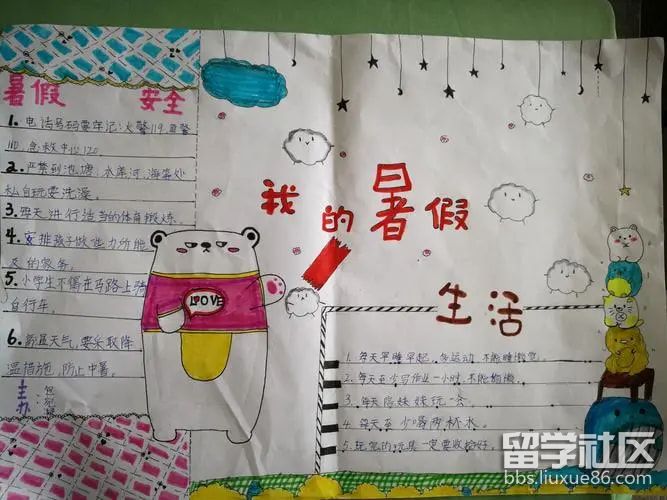 暑假 安全
1. 电话号码要牢记:火警119,匪警
110 急救中心120
2. 严禁到池塘、水库河、海等处
私自玩耍洗澡。
3. 每天进行适当的体育锻炼。
4. 安排孩子做些力所能
及的家务。
5. 小学生不得在马路上骑
自行车。
6. 防显天气,要采取降
温措施,防止中暑。
主办
LOVE
我的暑假
生活
1. 每天早睡早起,多运动,不能睡懒觉。
2. 每天至少写作业一小时,不能偷懒。
3. 每天陪妹妹玩一会
4. 每天至少喝两杯水。
5. 玩完的玩具一定要收拾好。
留学社区
bbs.liuxue86.com